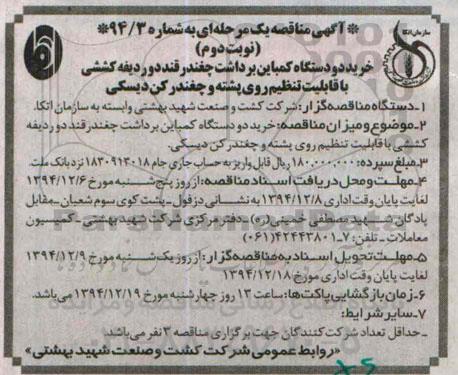 سازمان اتکا
* آگهی مناقصه یک مرحله‌ای به شماره ۹۴/۳*
(نوبت دوم)
خرید دو دستگاه کمباین برداشت چغندر قند دو ردیفه کششی
با قابلیت تنظیم روی پشته و چغندر کن دیسکی
۱ـ دستگاه مناقصه گزار: شرکت کشت و صنعت شهید بهشتی وابسته به سازمان اتکا.
۲ـ موضوع و میزان مناقصه: خرید دو دستگاه کمباین برداشت چغندر قند دو ردیفه
کششی با قابلیت تنظیم روی پشته و چغندر کن دیسکی.
۳ـ مبلغ سپرده: ۱۸۰.۰۰۰.۰۰۰ ریال قابل واریز به حساب جاری جام ۱۸۳۰۹۱۳۰۱۸ نزد بانک ملت.
۴ـ مهلت و محل دریافت اسناد مناقصه: از روز پنج شنبه مورخ ۱۳۹۴/۱۲/۶
لغایت پایان وقت اداری ۱۳۹۴/۱۲/۸ به نشانی دزفول ـ پشت کوی سوم شعبان ـ مقابل
پادگان شهید مصطفی خمینی (ره) ـ دفتر مرکزی شرکت شهید بهشتی ـ کمیسیون
معاملات ـ تلفن: ۷ـ۴۲۴۴۳۸۰۱ (۰۶۱)
۵ـ مهلت تحویل اسناد به مناقصه گزار: از روز یک شنبه مورخ ۱۳۹۴/۱۲/۹
لغایت پایان وقت اداری مورخ ۱۳۹۴/۱۲/۱۸
۶ـ زمان بازگشایی پاکت‌ها: ساعت ۱۳ روز چهارشنبه مورخ ۱۳۹۴/۱۲/۱۹ می‌باشد.
۷ـ سایر شرایط:
ـ حداقل تعداد شرکت کنندگان جهت برگزاری مناقصه ۳ نفر می‌باشد.
«روابط عمومی شرکت کشت و صنعت شهید بهشتی»